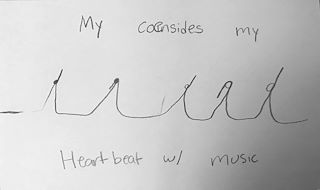 My coensides my
Heartbeat w/ music